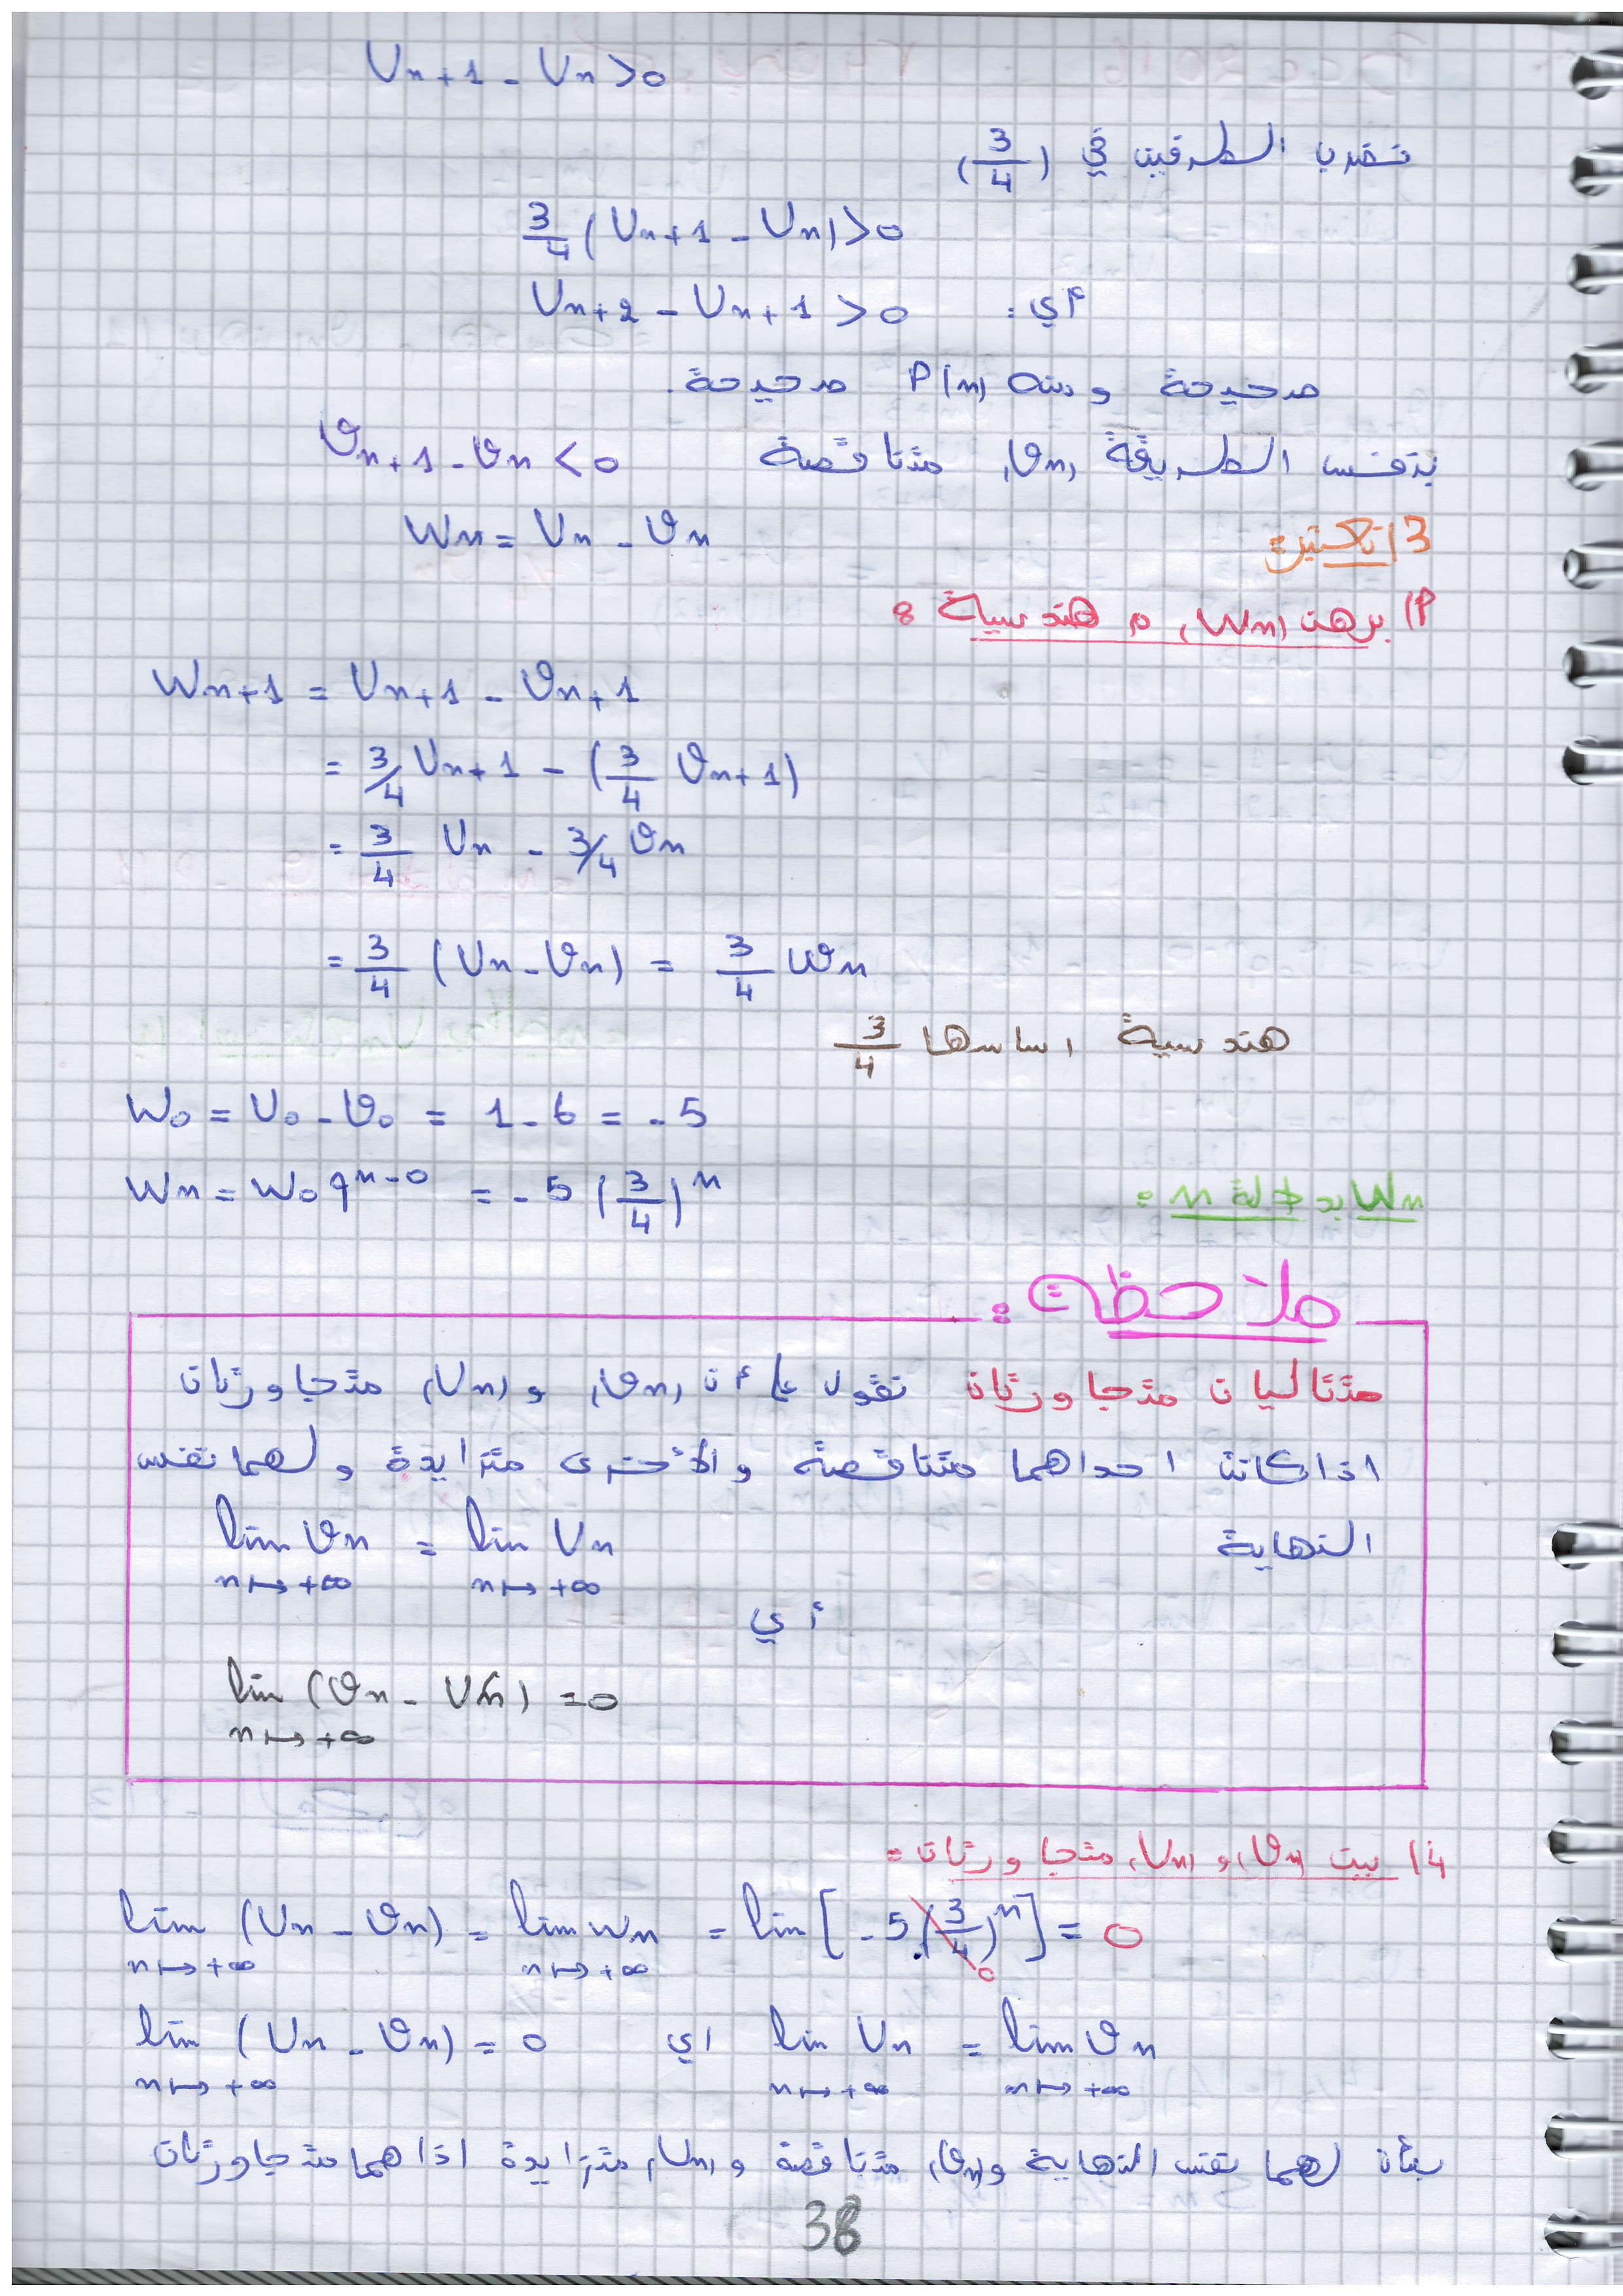 Un+1 - Un >0
نضرب الطرفين في (3/4)
3/4 (Un+1 - Un) >0
أي: Un+2 - Un+1 >0
صحيحة ومنه P(n) صحيحة.
بنفس الطريقة (𝒱n) متناقصة 𝒱n+1 - 𝒱n <0
3) نعتبر: Wn = Un - 𝒱n
أ) برهن (Wn) م هندسية:
Wn+1 = Un+1 - 𝒱n+1
= 3/4 Un+1 - (3/4 𝒱n+1)
= 3/4 Un - 3/4 𝒱n
= 3/4 (Un - 𝒱n) = 3/4 Wn
هندسية اساسها 3/4
W0 = U0 - 𝒱0 = 1 - 6 = -5
Wn بدلالة n: Wn = W0 q^n-0 = -5 (3/4)^n
ملاحظة:
متتاليات متجاورتان نقول على أن (𝒱n) و (Un) متجاورتان
اذا كانت احداهما متناقصة والأخرى متزايدة ولهما نفس
النهاية lim 𝒱n = lim Un
n↦+∞ n↦+∞
أي
lim (𝒱n - Un) =0
n↦+∞
4) بين (𝒱n) و (Un) متجاورتان:
lim (Un - 𝒱n) = lim Wn = lim [-5.(3/4)^n] = 0
n↦+∞ n↦+∞ 0
lim (Un - 𝒱n) = 0 اي lim Un = lim 𝒱n
n↦+∞ n↦+∞ n↦+∞
بأن لهما نفس النهاية و(𝒱n) متناقصة و (Un) متزايدة اذا هما متجاورتان
38